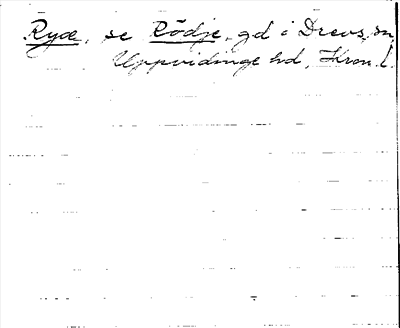 Ryæ, se Rödje, gd i Drevs sn,
Uppvidinge hd, Kron. l.